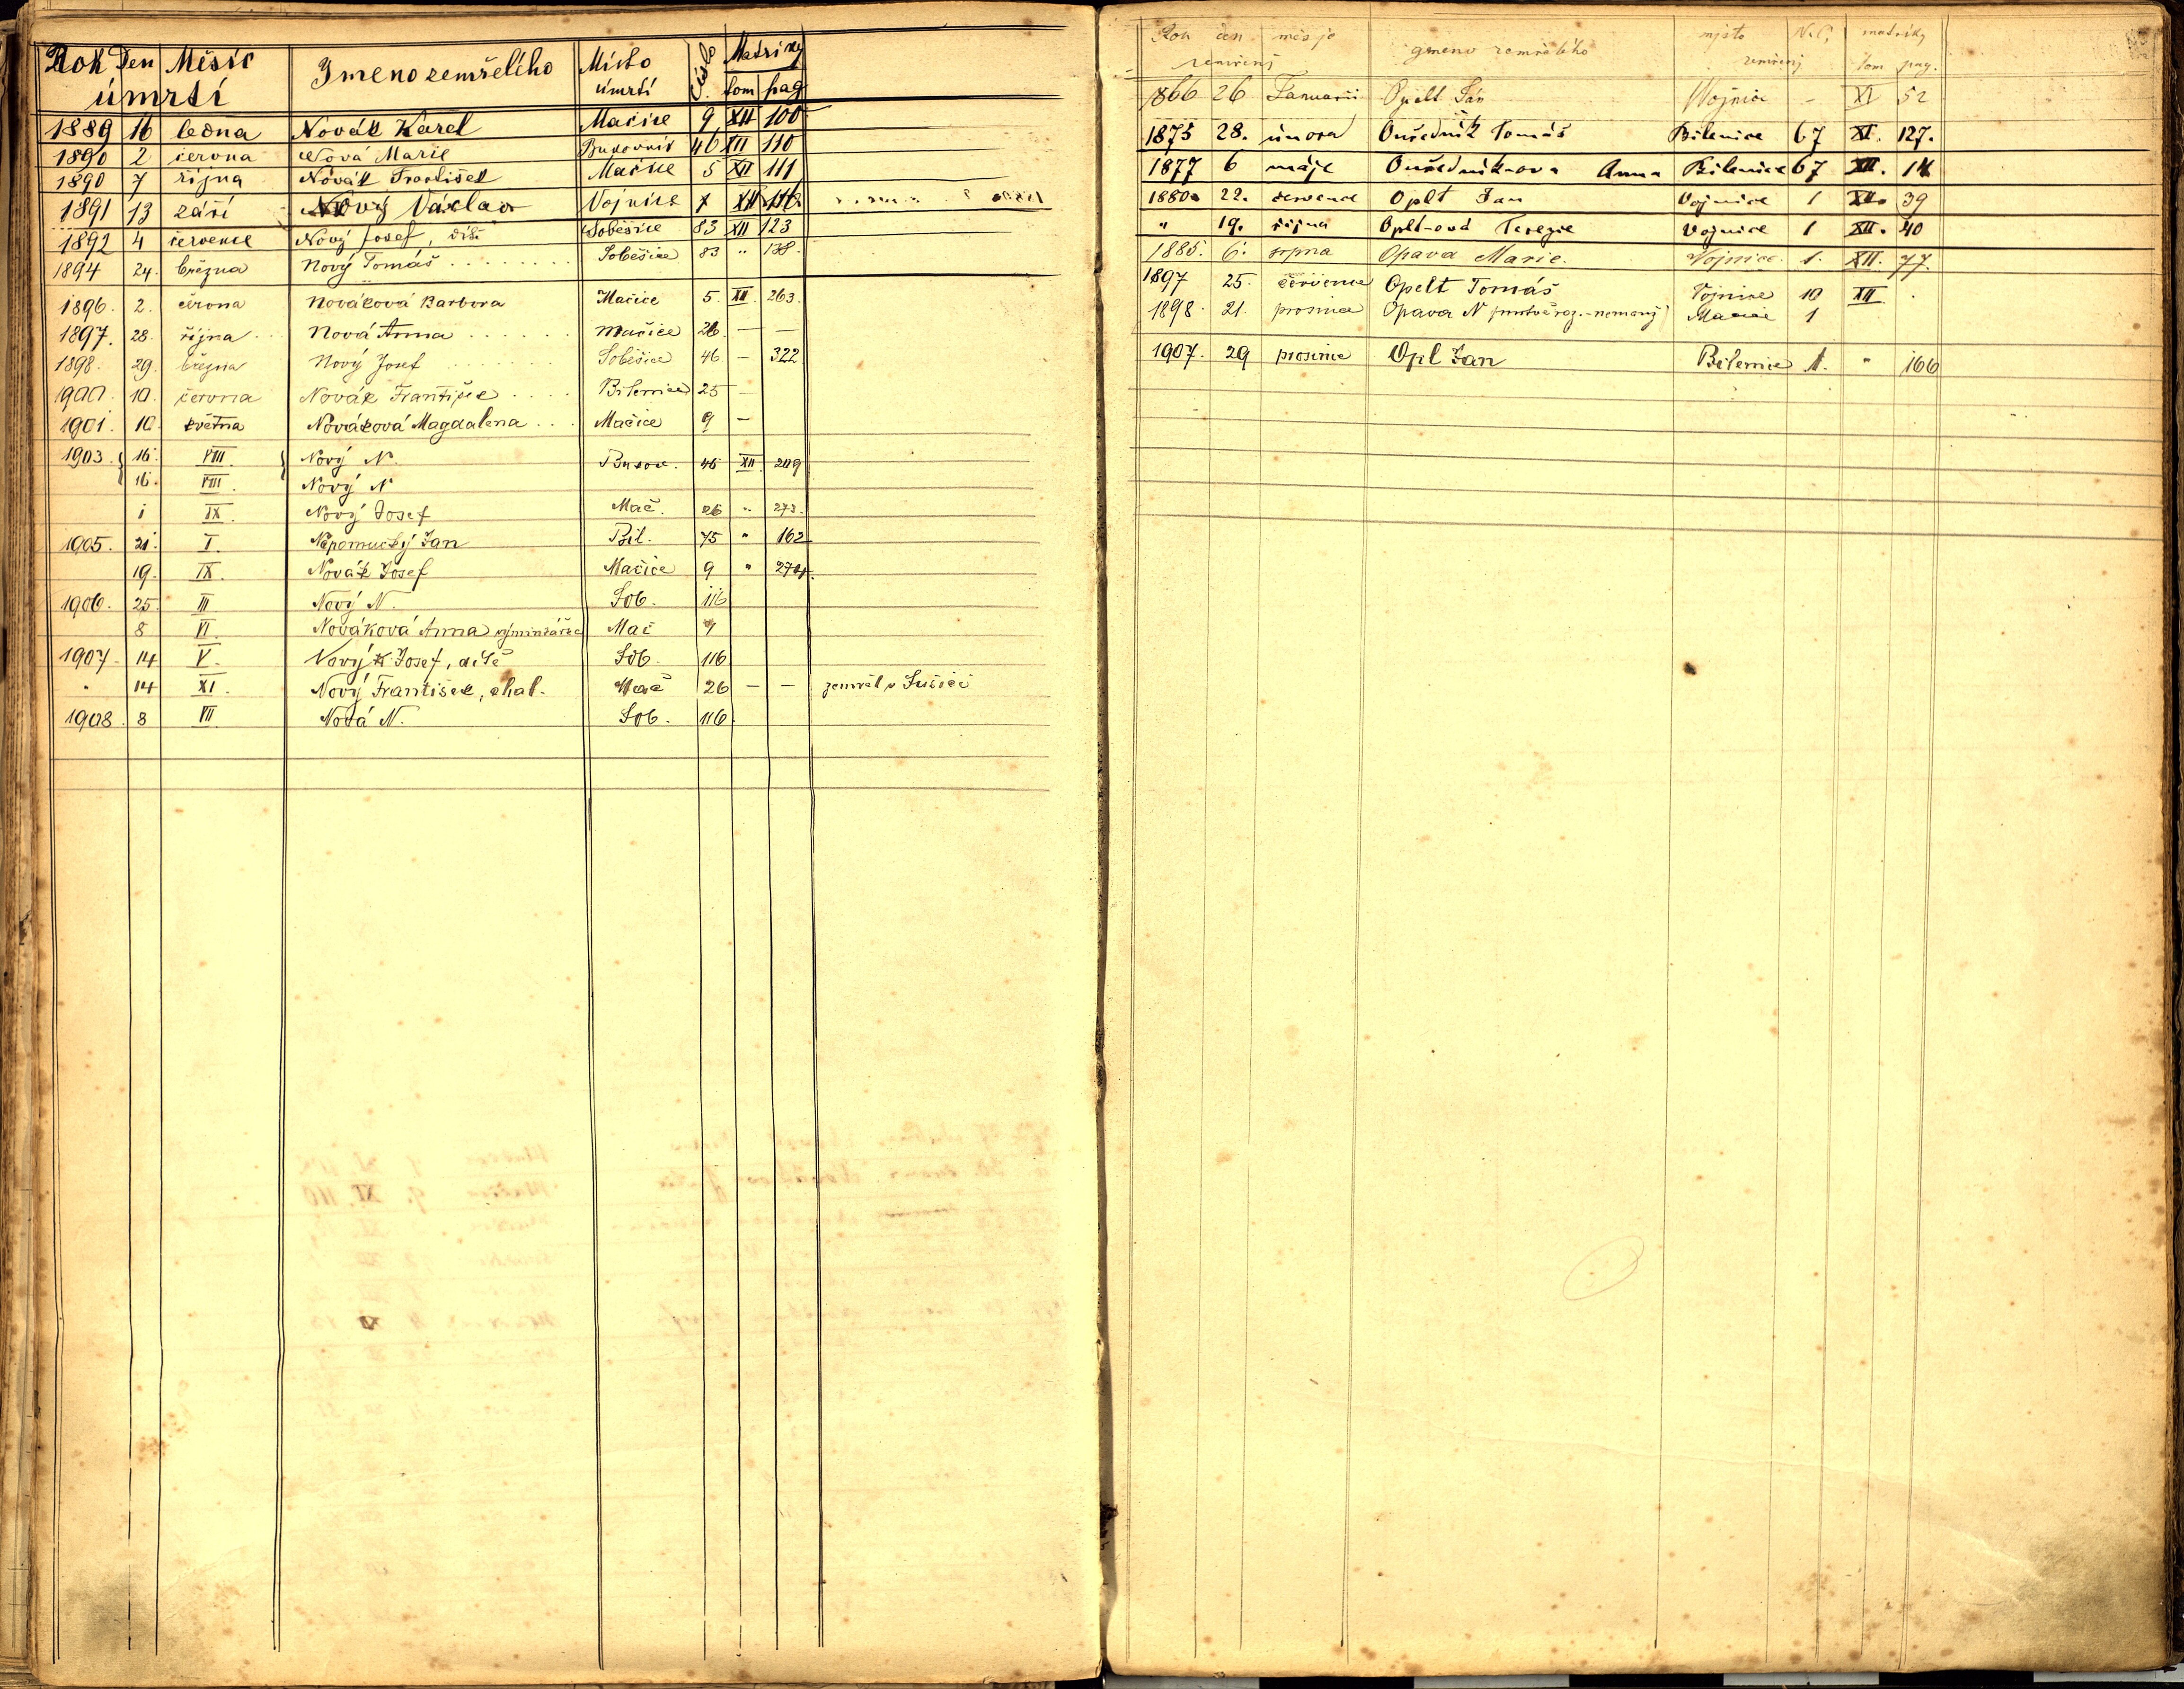 Rok Den Měsíc Jmeno zemřelího Místo Číslo Matriky
úmrtí úmrtí tom pag
1889 16 ledna Novák Karel Mačice 9 XII 100
1890 2 června Nová Marie Bukovník 46 XII 110
1890 7 října Novák František Mačice 5 XII 111
1891 13 září Nový Václav Vojnice 7 XII 116
1892 4 července Nový Josef, dítě Soběšice 83 XII 123
1894 24. března Nový Tomáš Soběšice 83 " 138.
1896. 2. června Nováková Barbora Mačice 5. XII. 263.
1897. 28. října Nová Anna Mačice 26 — —
1898. 29. března Nový Josef Soběšice 46 — 322
1900. 10. června Novák František Bilenice 25 —
1901. 10. května Nováková Magdalena Mačice 9 —
1903. 16. VIII. Nový N. Bukov. 46 XII. 209
16. VIII. Nový N
1 IX. Nový Josef Mač. 26 " 273.
1905. 21. I. Nepomucký Jan Bil. 75 " 162
19. IX. Novák Josef Mačice 9 " 274.
1906. 25. III Nový N. Sob. 116
8 VI. Nováková Anna výminkářka Mač 9
1907 14 V. Nový Josef, dítě Sob. 116
" 14 XI. Nový František, chal. Mač 26 — — zemřel v Sušici
1908. 8 VII Nová N. Sob. 116
Rok den měsjc gmeno zemřelého mjsto N. C. matriky
zemřenj zemřenj tom pag.
1866 26 Januarii Opelt Ján Wojnice - XI 52
1875 28. února Ouředník Tomáš Bilenice 67 XI. 127.
1877 6 máje Ouředník-ova Anna Bilenice 67 XII. 14
1880. 22. července Oplt Jan Vojnice 1 XII. 39
" 19. října Oplt-ová Terezie Vojnice 1 XII. 40
1885. 6. srpna Opava Marie. Vojnice. 1. XII. 77.
1897 25. července Opelt Tomáš Vojnice 10 XII.
1898. 21. prosince Opava N Mačice 1
1907. 29 prosince Opl Jan Bilenice 1. " 166